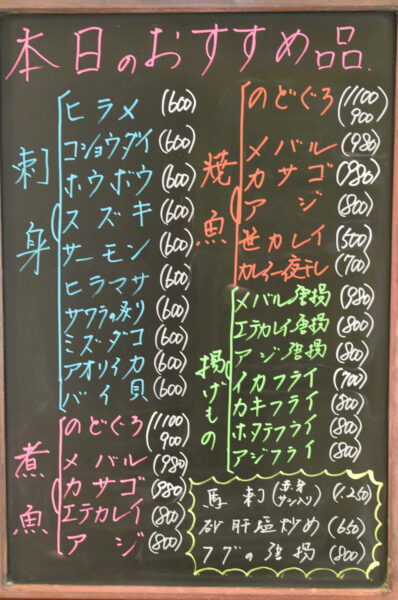 本日のおすすめ品
刺身
ヒラメ (600)
コショウダイ (600)
ホウボウ (600)
スズキ (600)
サーモン (600)
ヒラマサ (600)
サワラの炙り (600)
ミズダコ (600)
アオリイカ (600)
バイ貝 (600)
煮魚
のどぐろ (1100 900)
メバル (980)
カサゴ (980)
エテカレイ (800)
アジ (800)
焼魚
のどぐろ (1100 900)
メバル (980)
カサゴ (980)
アジ (800)
笹カレイ (500)
カレイ一夜干し (700)
揚げもの
メバル唐揚 (980)
エテカレイ唐揚 (800)
アジ唐揚 (800)
イカフライ (700)
カキフライ (800)
ホタテフライ (800)
アジフライ (800)
馬刺 (赤身 サシ入り) (1250)
砂肝塩炒め (650)
フグの唐揚 (800)